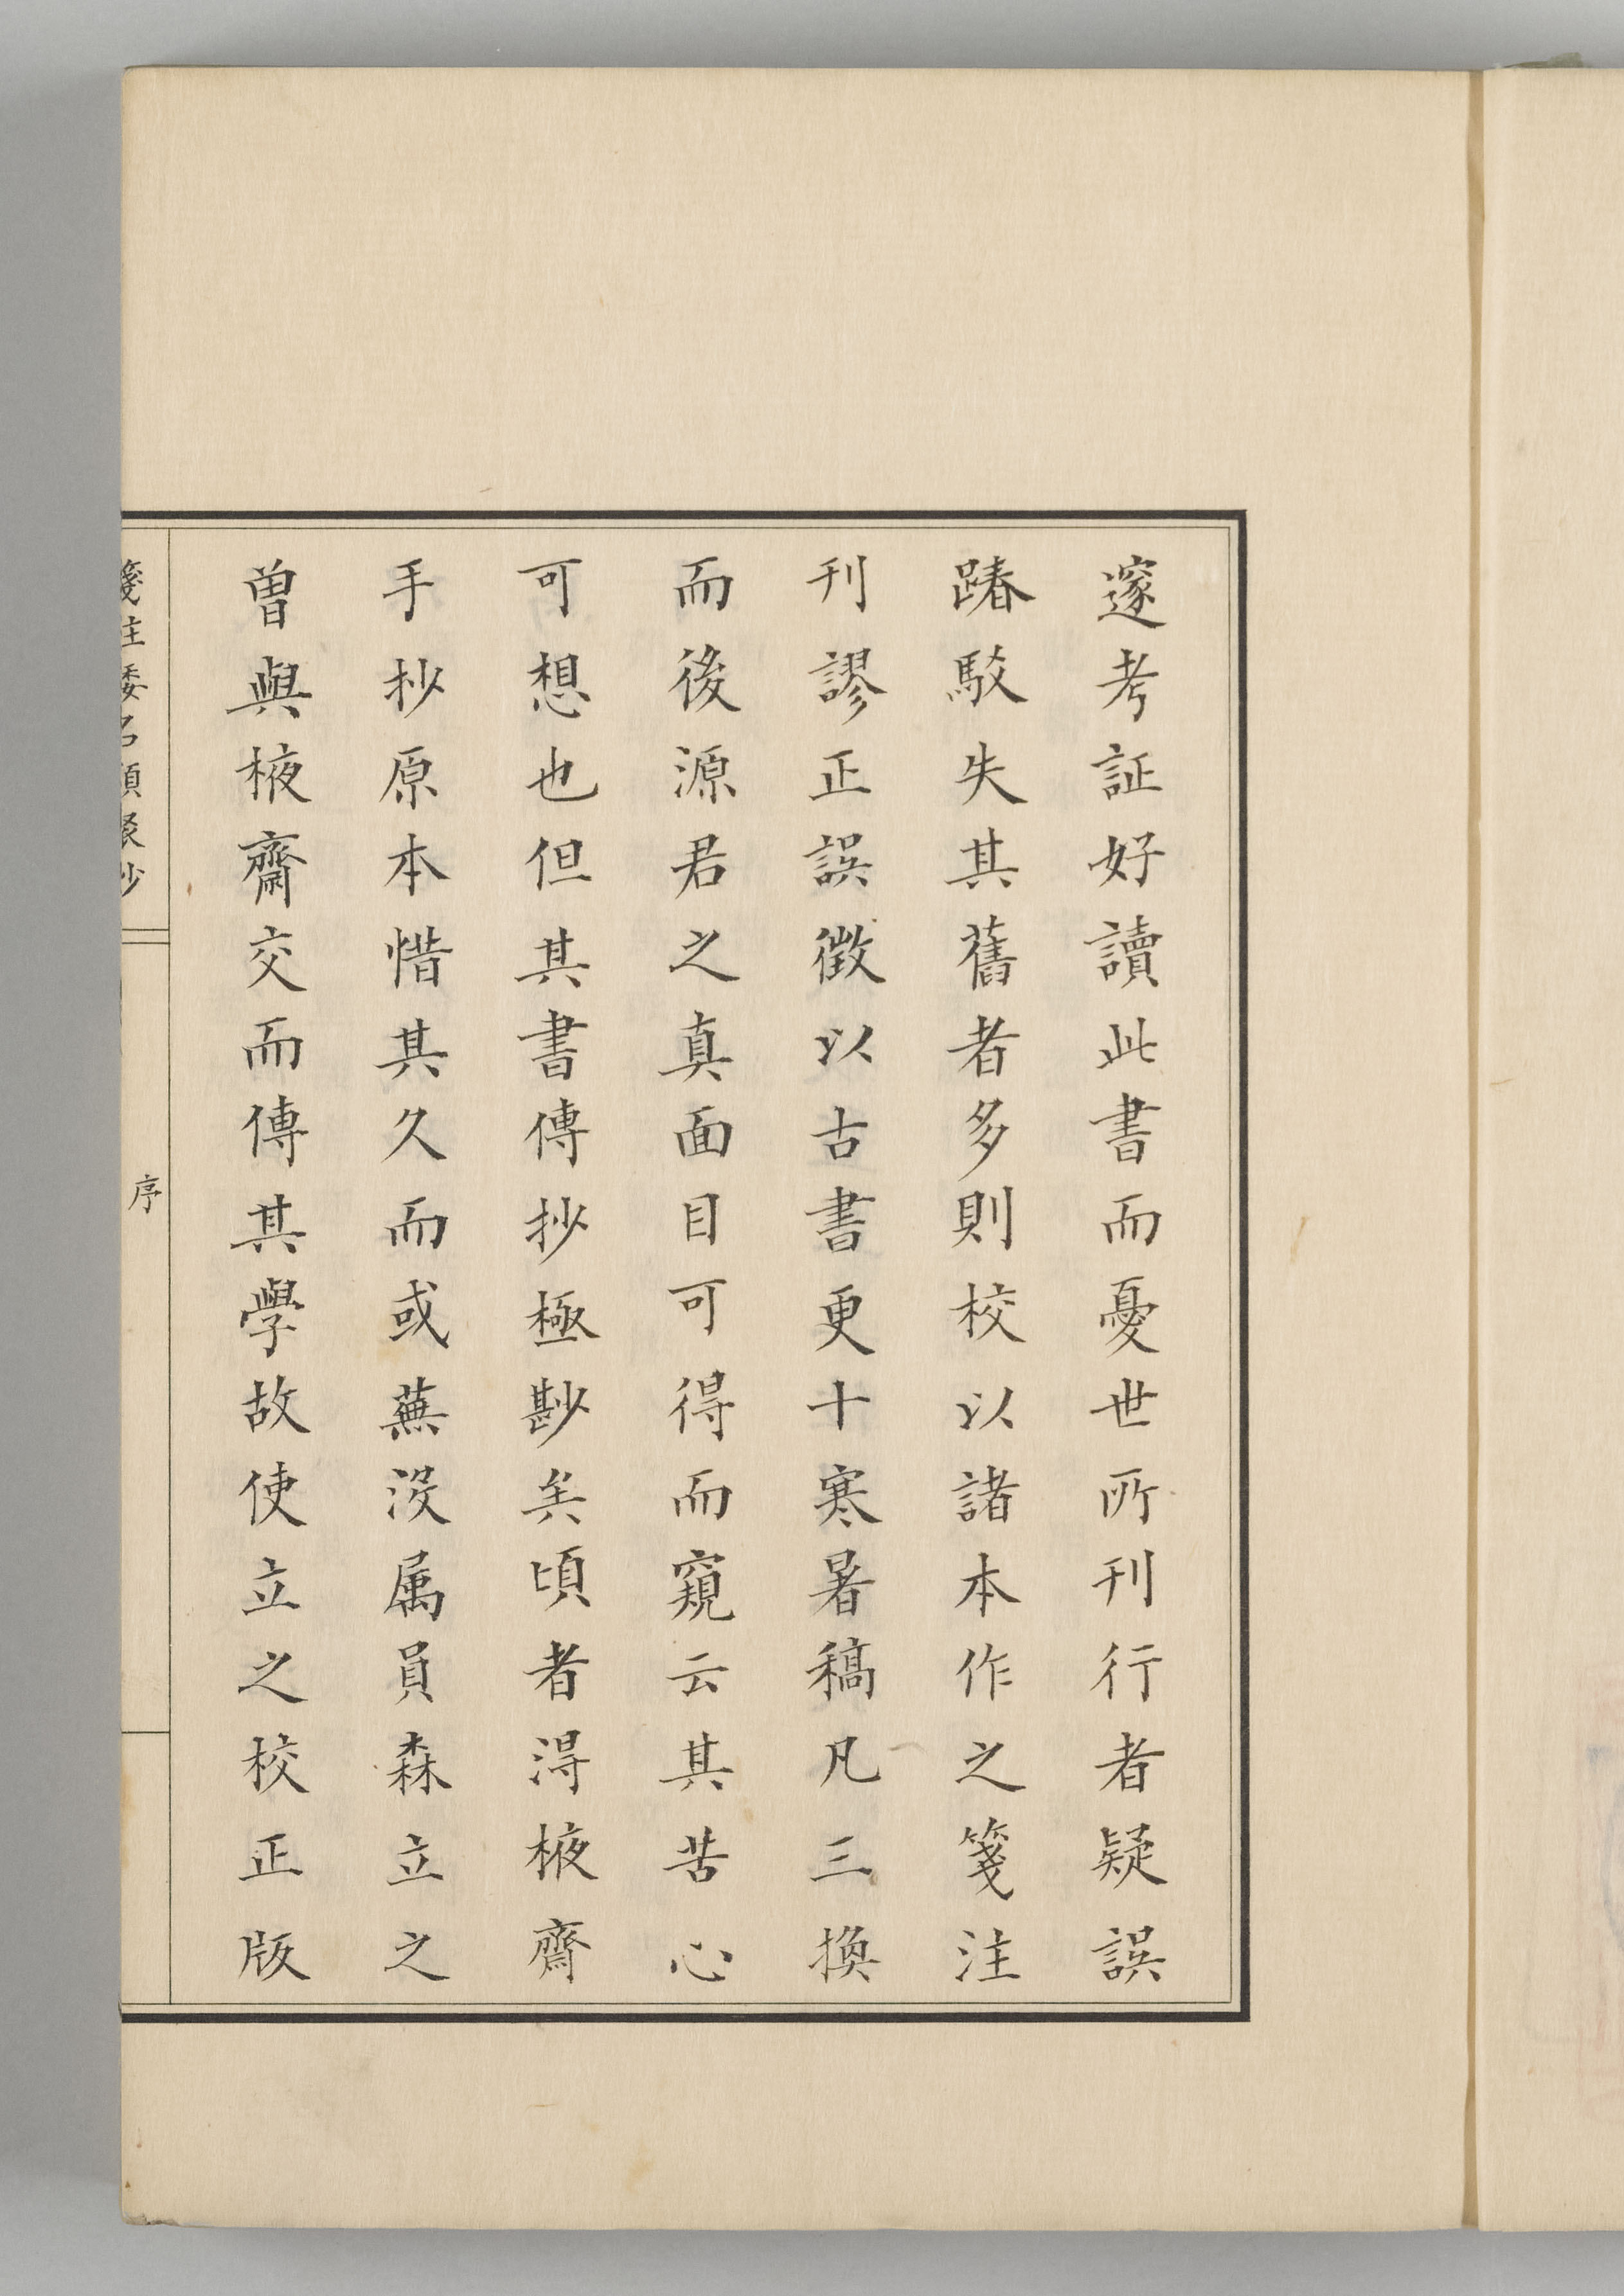 邃考証好讀此書而憂世所刊行者疑誤
踳駁失其舊者多則校以諸本作之箋注
刊謬正誤徵以古書更十寒暑稿凡三換
而後源君之真面目可得而窺云其苦心
可想也但其書傳抄極尠矣頃者淂棭齋
手抄原本惜其久而或蕪没属員森立之
曽與棭齋交而傳其學故使立之校正版
箋注倭名類聚抄
序